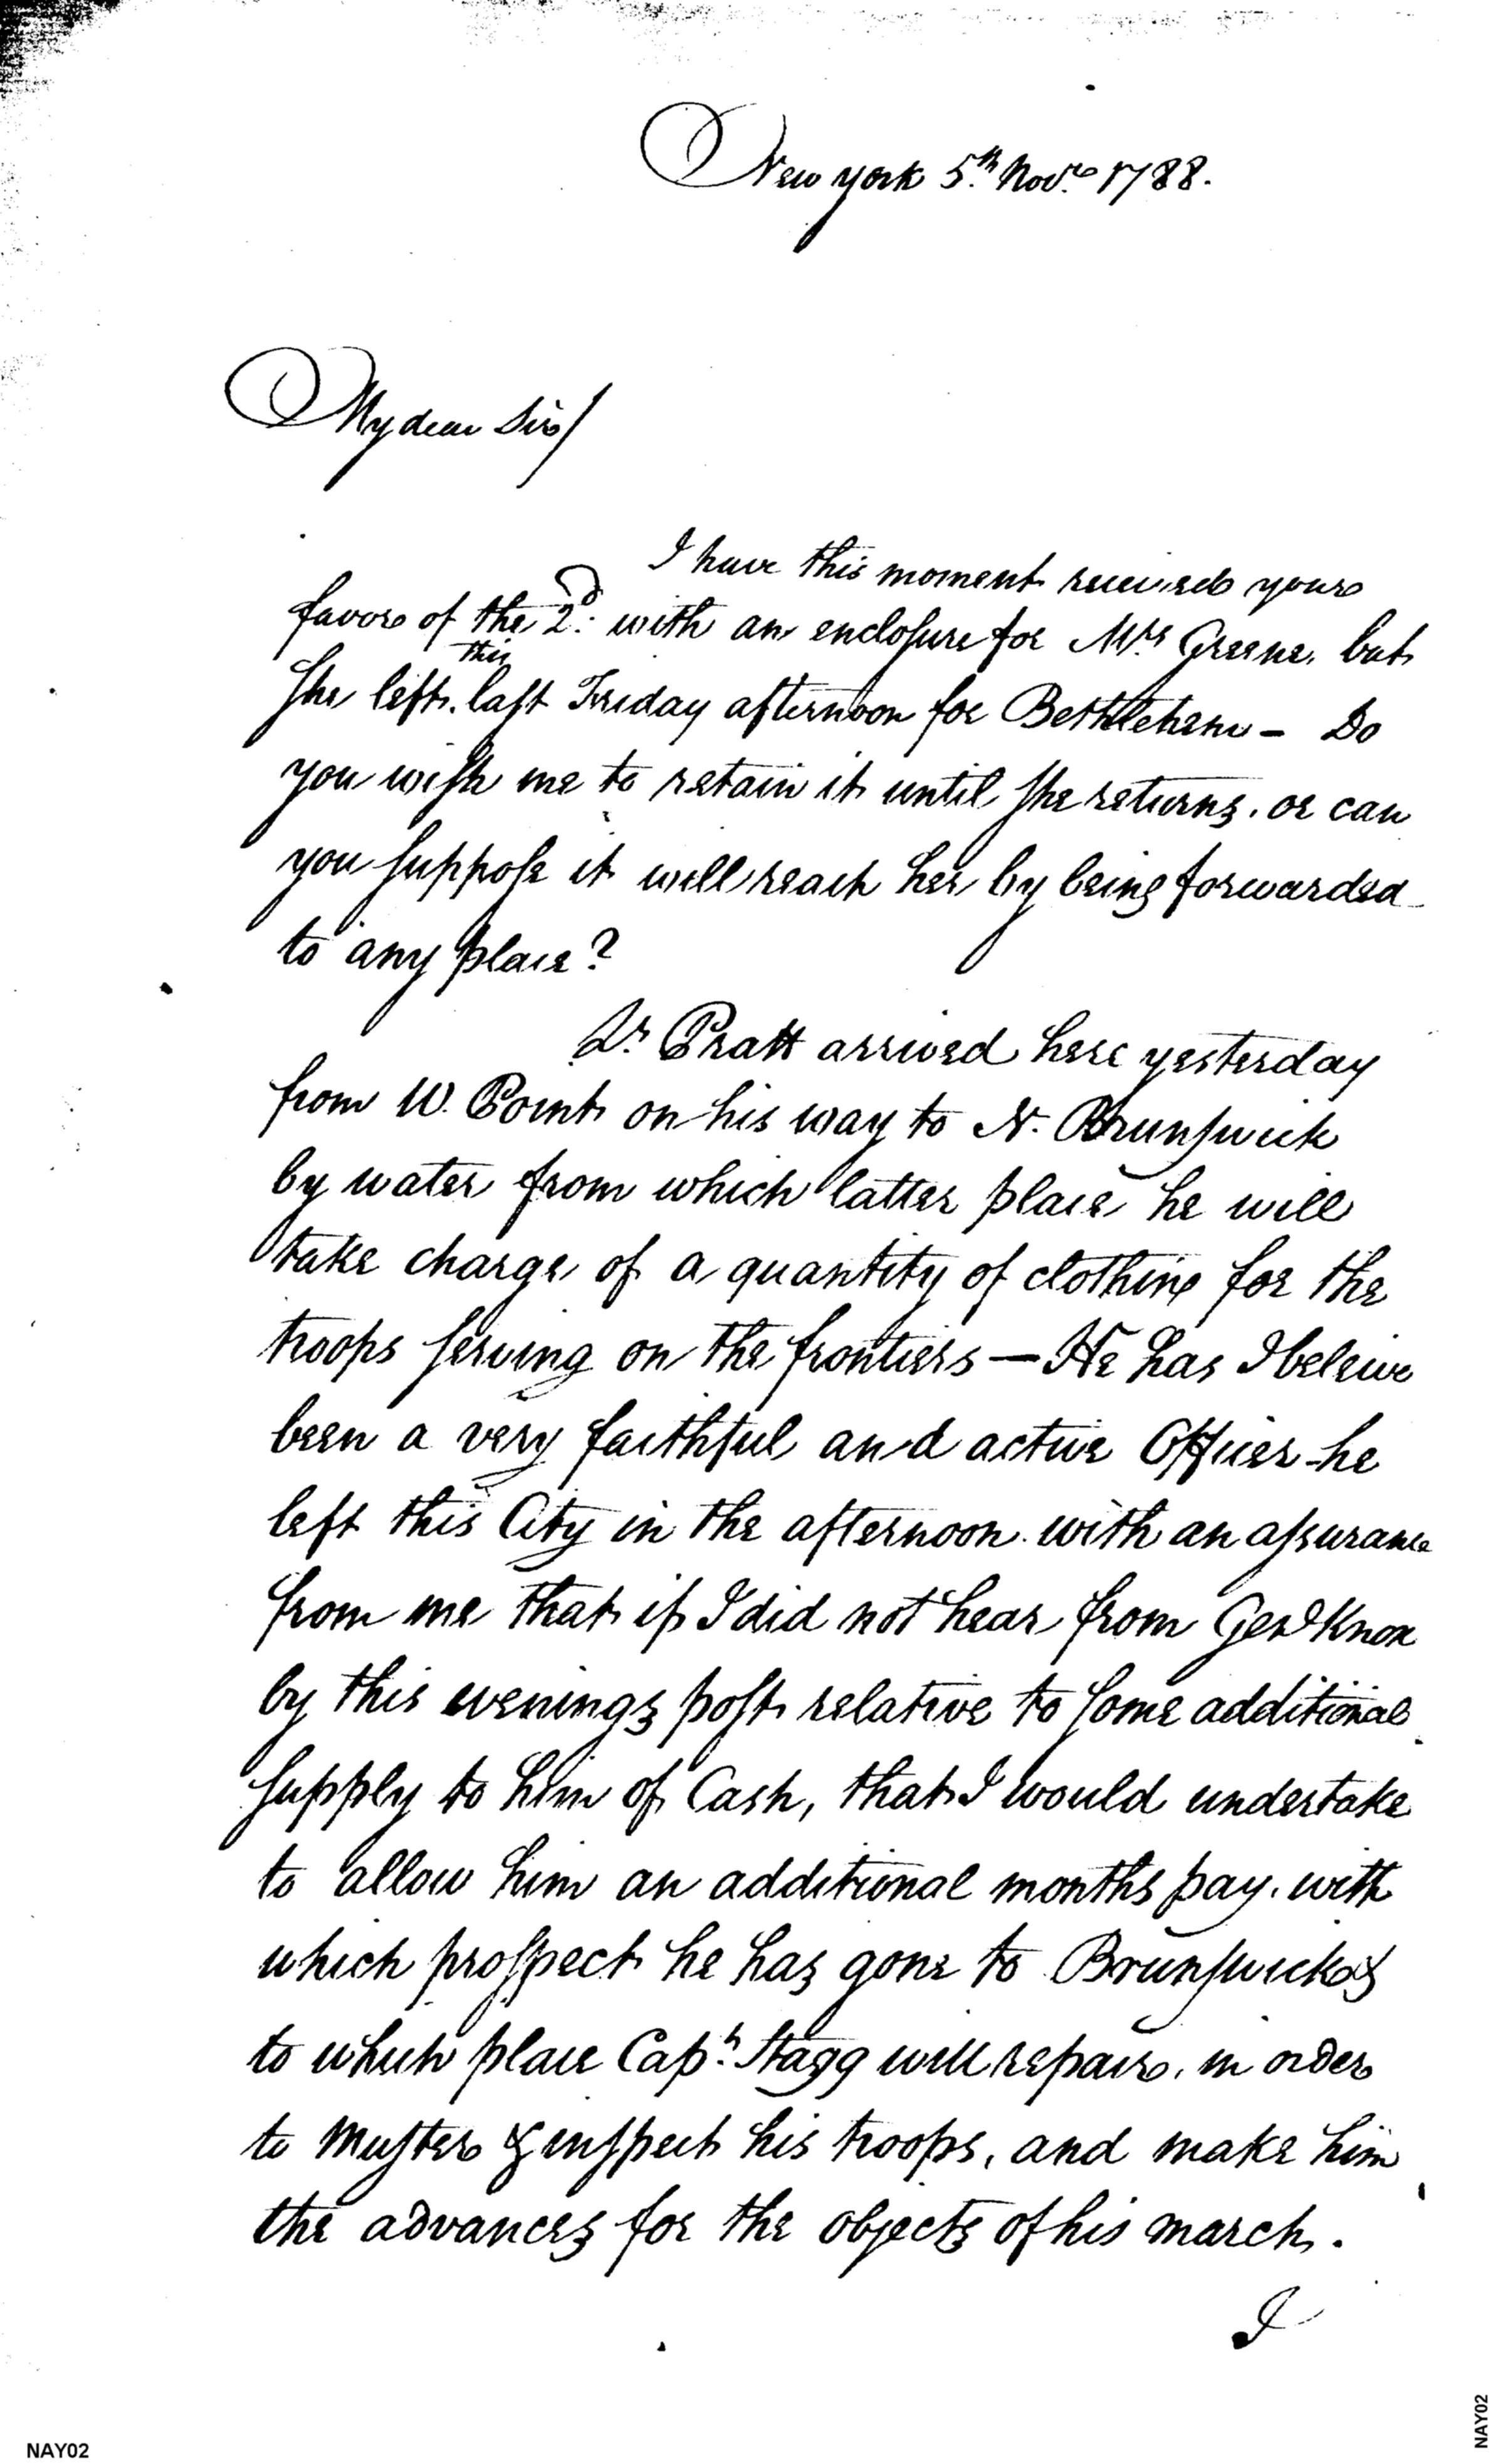 New york 5th Novr 1788.
My dear Sir/
I have this moment received your
favor of the 2d: with an enclosure for Mrs Greene, but
this
she left last Friday afternoon for Bethlehem – Do
you wish me to retain it until she returns, or can
you suppose it will reach her by being forwarded
to any place?
Lt Pratt arrived here yesterday
from W. Point on his way to N. Brunswick
by water from which latter place he will
take charge of a quantity of clothing for the
troops serving on the frontiers — He has I beleive
been a very faithful and active Officer – he
left this City in the afternoon with an assurance
from me that if I did not hear from Genl Knox
by this evenings post relative to some additional
supply to him of Cash, that I would undertake
to allow him an additional months pay. with
which prospect he has gone to Brunswick &
to which place Capt. Stagg will repair, in order
to Muster & inspect his troops, and make him
the advances for the objects of his march.
I
NAY02
NAY02